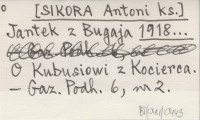 [SIKORA Antoni ks.]
Jantek z Bugaja 1918...
O Kubusiowi z Kocierca.
– Gaz. Podh. 6, nr 2.